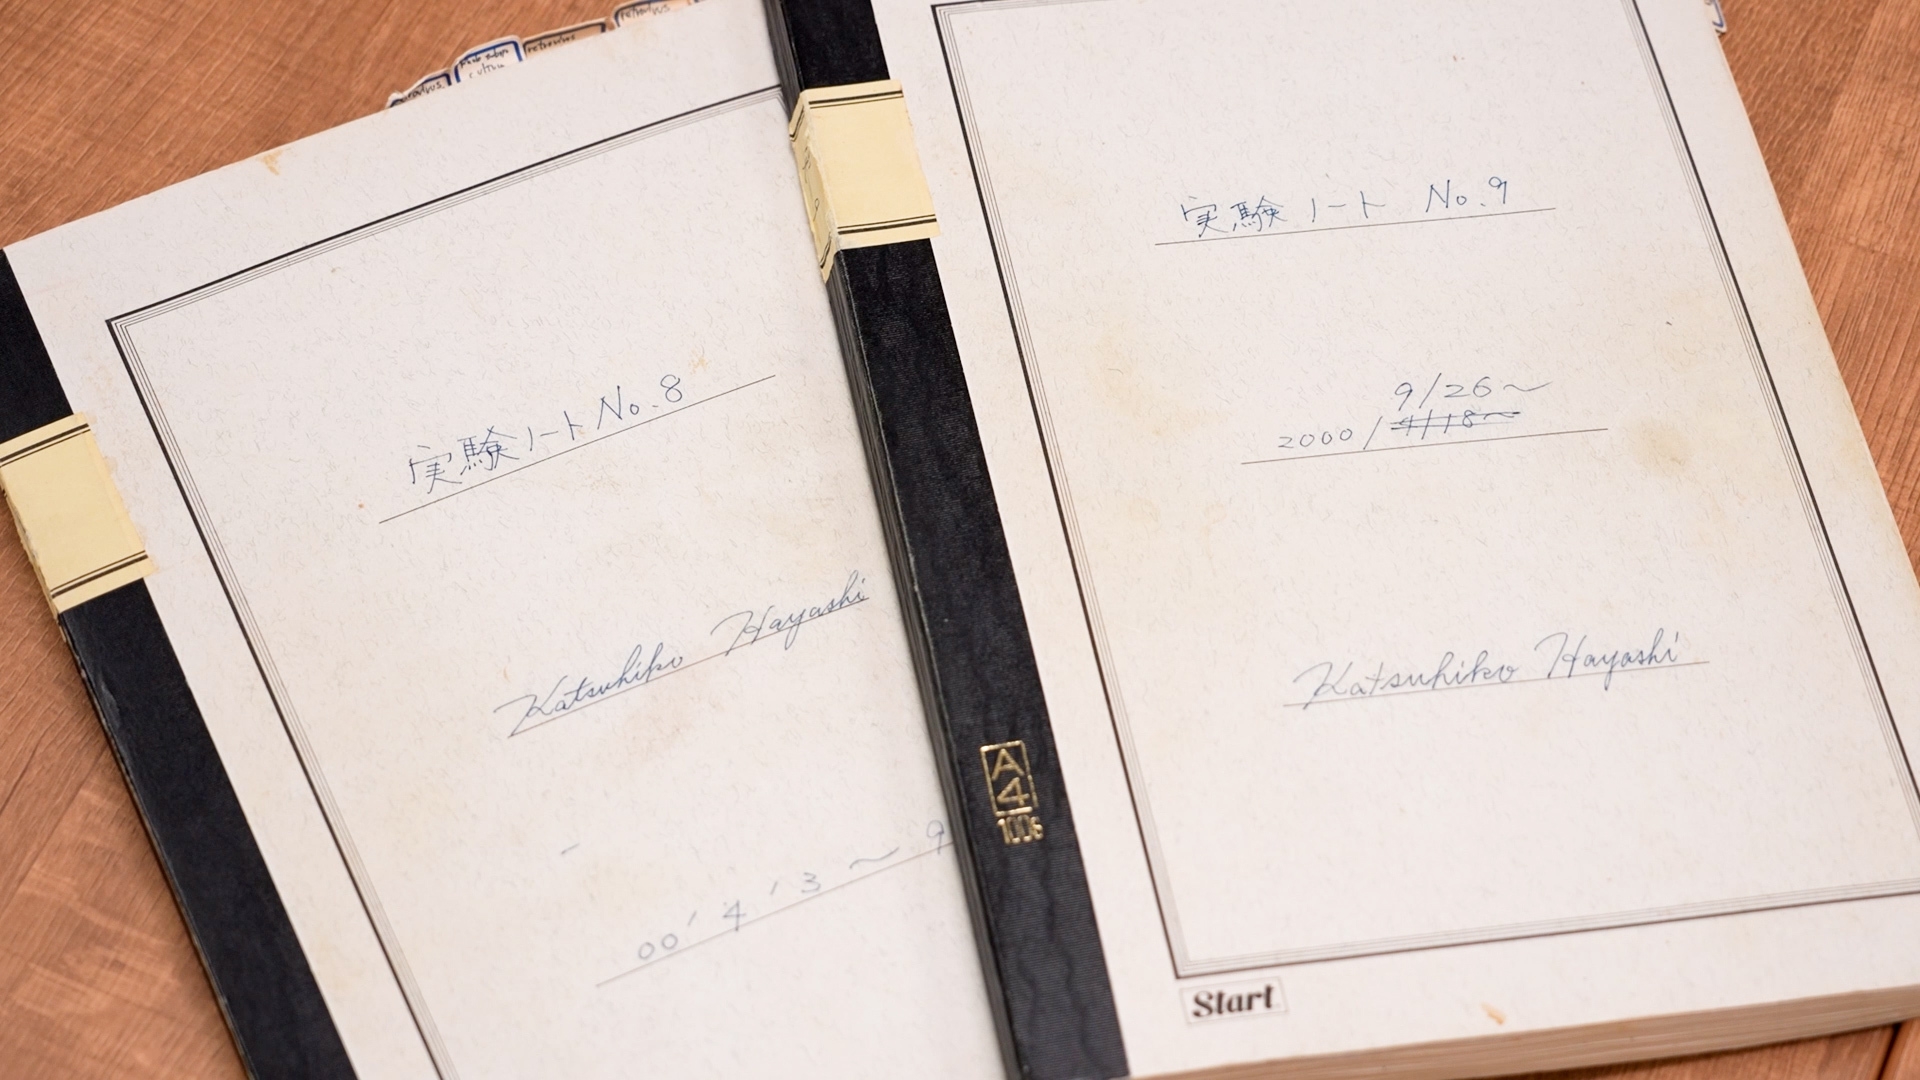 retrovirus
retrovirus
実験ノート No.8
Katsuhiko Hayashi
00' 4' 3 ~ 9
実験ノート No.9
9/26~
2000/4/18~
Katsuhiko Hayashi
A4
100s
Start